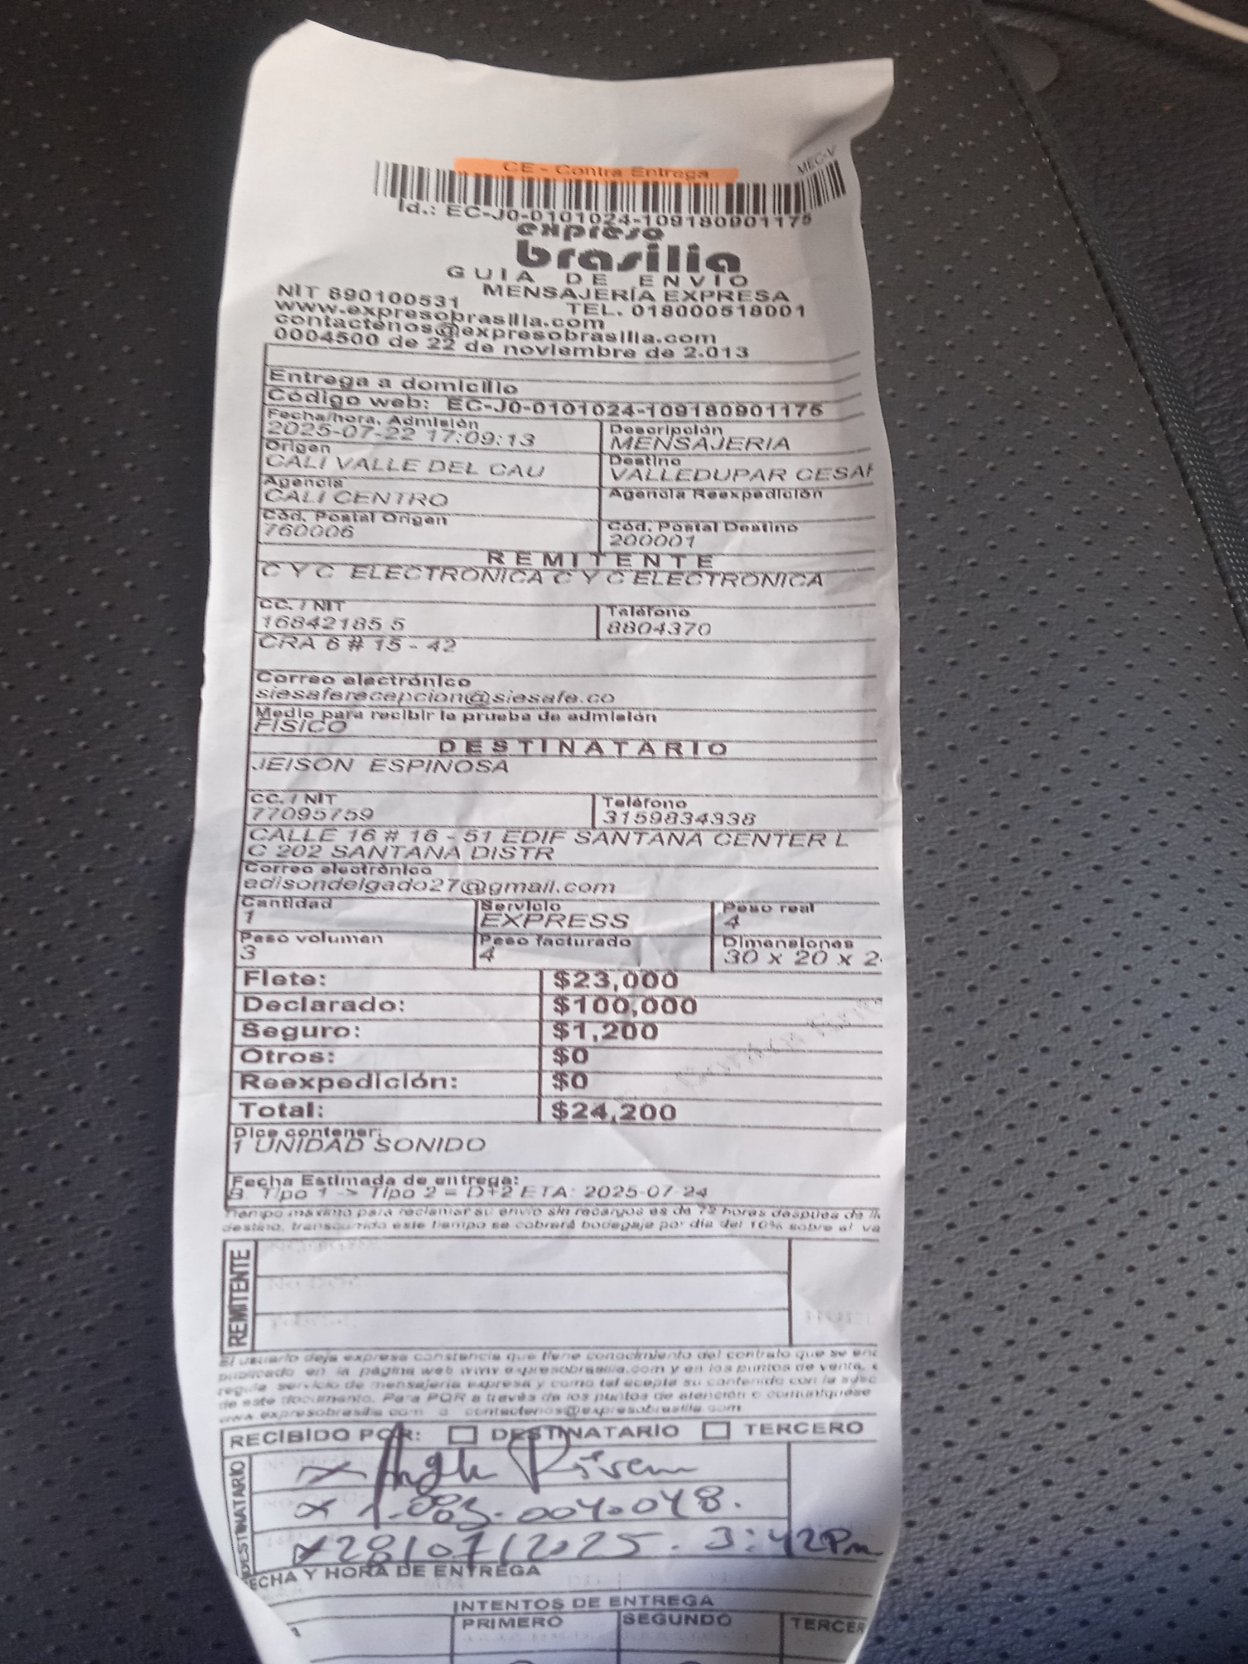 CE - Contra Entrega
MEC-V
Id.: EC-J0-0101024-109180901175
expreso
brasilia
GUIA DE ENVIO
MENSAJERÍA EXPRESA
NIT 890100531
TEL. 018000518001
www.expresobrasilia.com
contactenos@expresobrasilia.com
0004500 de 22 de noviembre de 2.013
Entrega a domicilio
Código web: EC-J0-0101024-109180901175
Fecha/hora, Admisión
2025-07-22 17:09:13
Descripción
MENSAJERIA
Origen
CALI VALLE DEL CAU
Destino
VALLEDUPAR CESAR
Agencia
CALI CENTRO
Agencia Reexpedición
Cód. Postal Origen
760006
Cód. Postal Destino
200001
REMITENTE
C Y C ELECTRONICA C Y C ELECTRONICA
CC. / NIT
16842185 5
Teléfono
8804370
CRA 6 # 15 - 42
Correo electrónico
siesaferecepcion@siesafe.co
Medio para recibir la prueba de admisión
FISICO
DESTINATARIO
JEISON ESPINOSA
CC. / NIT
77095759
Teléfono
3159834338
CALLE 16 # 16 - 51 EDIF SANTANA CENTER L
C 202 SANTANA DISTR
Correo electrónico
edisondelgado27@gmail.com
Cantidad
1
Servicio
EXPRESS
Peso real
4
Peso volumen
3
Peso facturado
4
Dimensiones
30 x 20 x 2
Flete: $23,000
Declarado: $100,000
Seguro: $1,200
Otros: $0
Reexpedición: $0
Total: $24,200
Dice contener:
1 UNIDAD SONIDO
Fecha Estimada de entrega:
B Tipo 1 -> Tipo 2 = D+2 ETA: 2025-07-24
Tiempo máximo para reclamar su envío sin recargos es de 72 horas después de
destino, transcurrido este tiempo se cobrará bodegaje por día del 10% sobre el va
REMITENTE
El usuario deja expresa constancia que tiene conocimiento del contrato que se enc
publicado en la página web www.expresobrasilia.com y en los puntos de venta,
regula servicio de mensajería expresa y como tal acepta su contenido con la susc
de este documento. Para PQR a través de los puntos de atención o comuníquese
www.expresobrasilia.com o contactenos@expresobrasilia.com
RECIBIDO POR: DESTINATARIO TERCERO
DESTINATARIO
x 1.083.004.048.
x 28/07/2025. 3:42Pm
FECHA Y HORA DE ENTREGA
INTENTOS DE ENTREGA
PRIMERO SEGUNDO TERCER